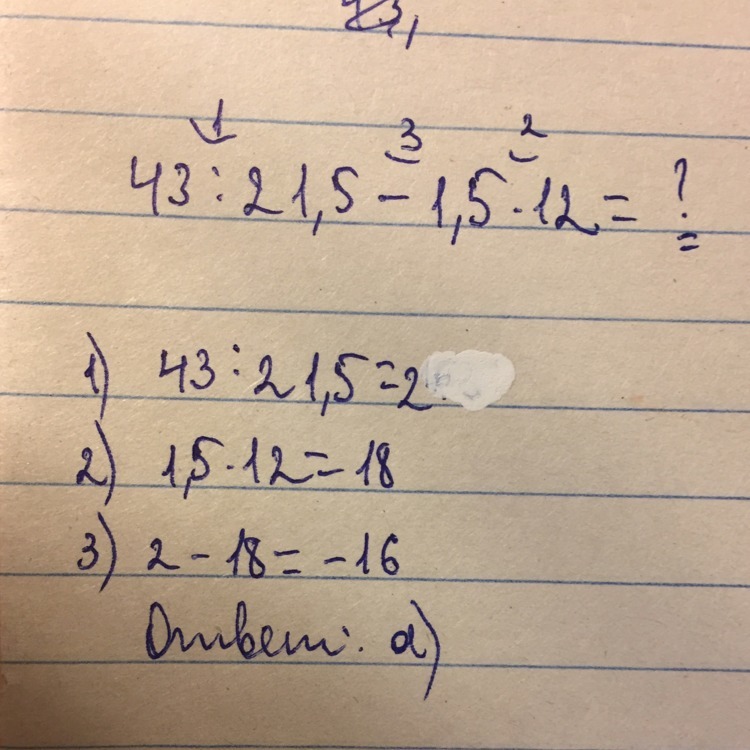 1 3 2
43:21,5-1,5·12= ?
1) 43:21,5=2
2) 1,5·12=18
3) 2-18=-16
Ответ: а)